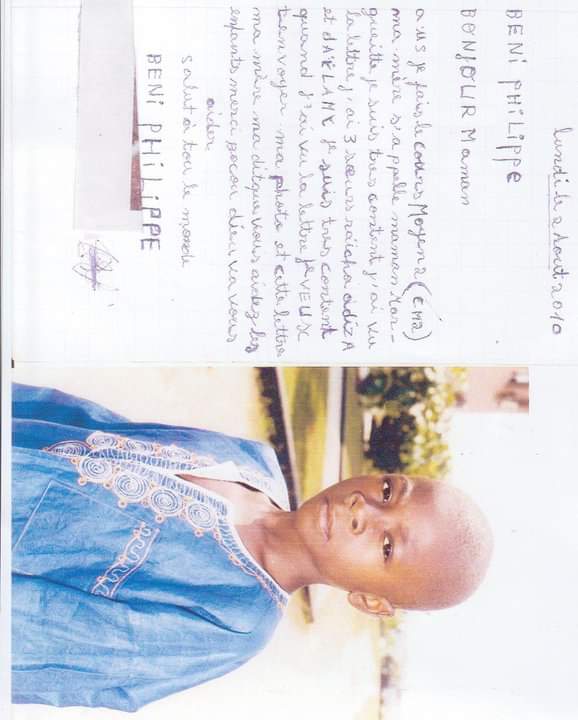 lundi le 2 Aout 2010
BENI PHILIPPE
BONJOUR Maman
je fais le cours Moyen 2 (CM2)
ma mère s'appelle maman Mar-
gueitte je suis tres content j'ai vu
la lettre j'ai 3 sœurs raicha adizA
et je suis tres content
quand j'ai vu la lettre je VEUX
t'envoyer ma photo et cette lettre
ma mère ma dit que vous aidez les
enfants merci bocou dieu va vous
aider
salut à tou le monde
BENI PHILIPPE